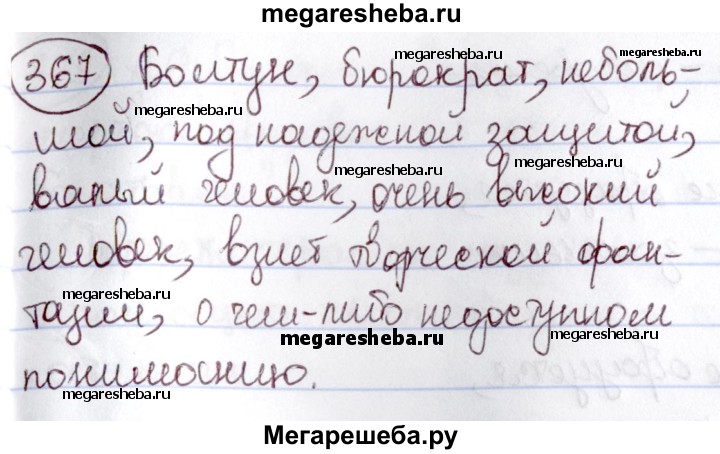 megaresheba.ru
367 Болтун, бюрократ, неболь-
megaresheba.ru
megaresheba.ru
megaresheba.ru
шой, под надежной защитой,
megaresheba.ru
вялый человек, очень высокий
megaresheba.ru
человек, взлет творческой фан-
megaresheba.ru
megaresheba.ru
тазии, о чем-либо недоступном
megaresheba.ru
megaresheba.ru
пониманию.
megaresheba.ru
megaresheba.ru
Мегарешеба.ру